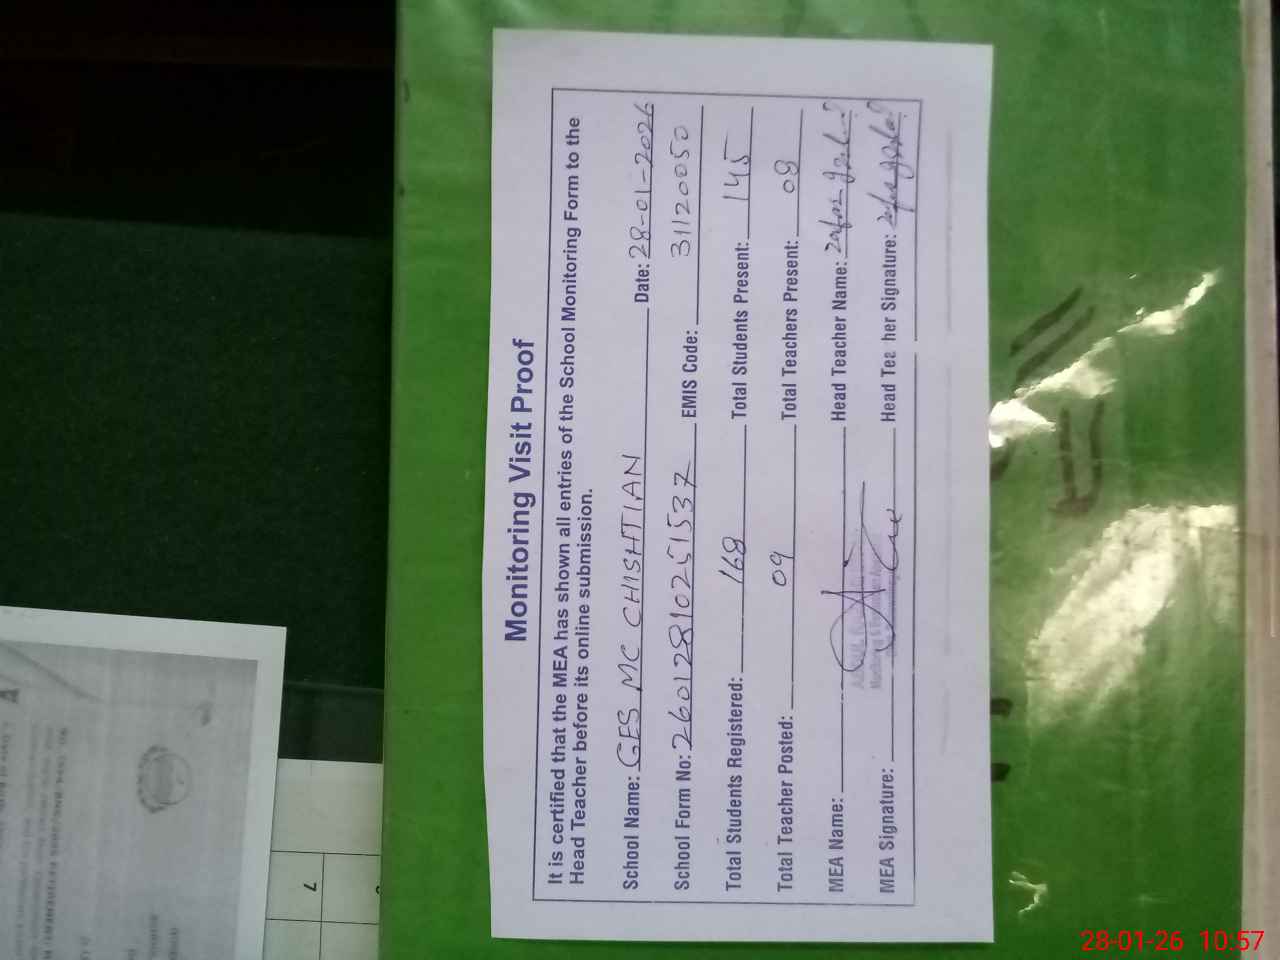 Monitoring Visit Proof
It is certified that the MEA has shown all entries of the School Monitoring Form to the
Head Teacher before its online submission.
School Name: GES MC CHISHTIAN Date: 28-01-2026
School Form No: 26012810251537 EMIS Code: 31120050
Total Students Registered: 168 Total Students Present: 145
Total Teacher Posted: 09 Total Teachers Present: 08
MEA Name: Head Teacher Name:
MEA Signature: Head Teacher Signature:
28-01-26 10:57